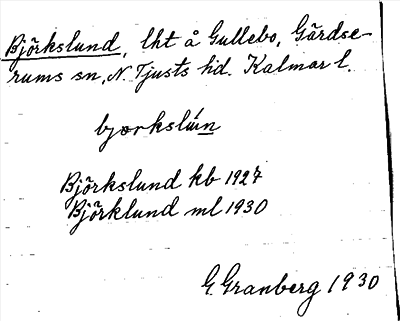 Björkslund, lht å Gullebo, Gärdse-
rums sn, N. Tjusts hd. Kalmar l.
bjørkslún
Björkslund kb 1927
Björklund ml 1930
G. Granberg 1930